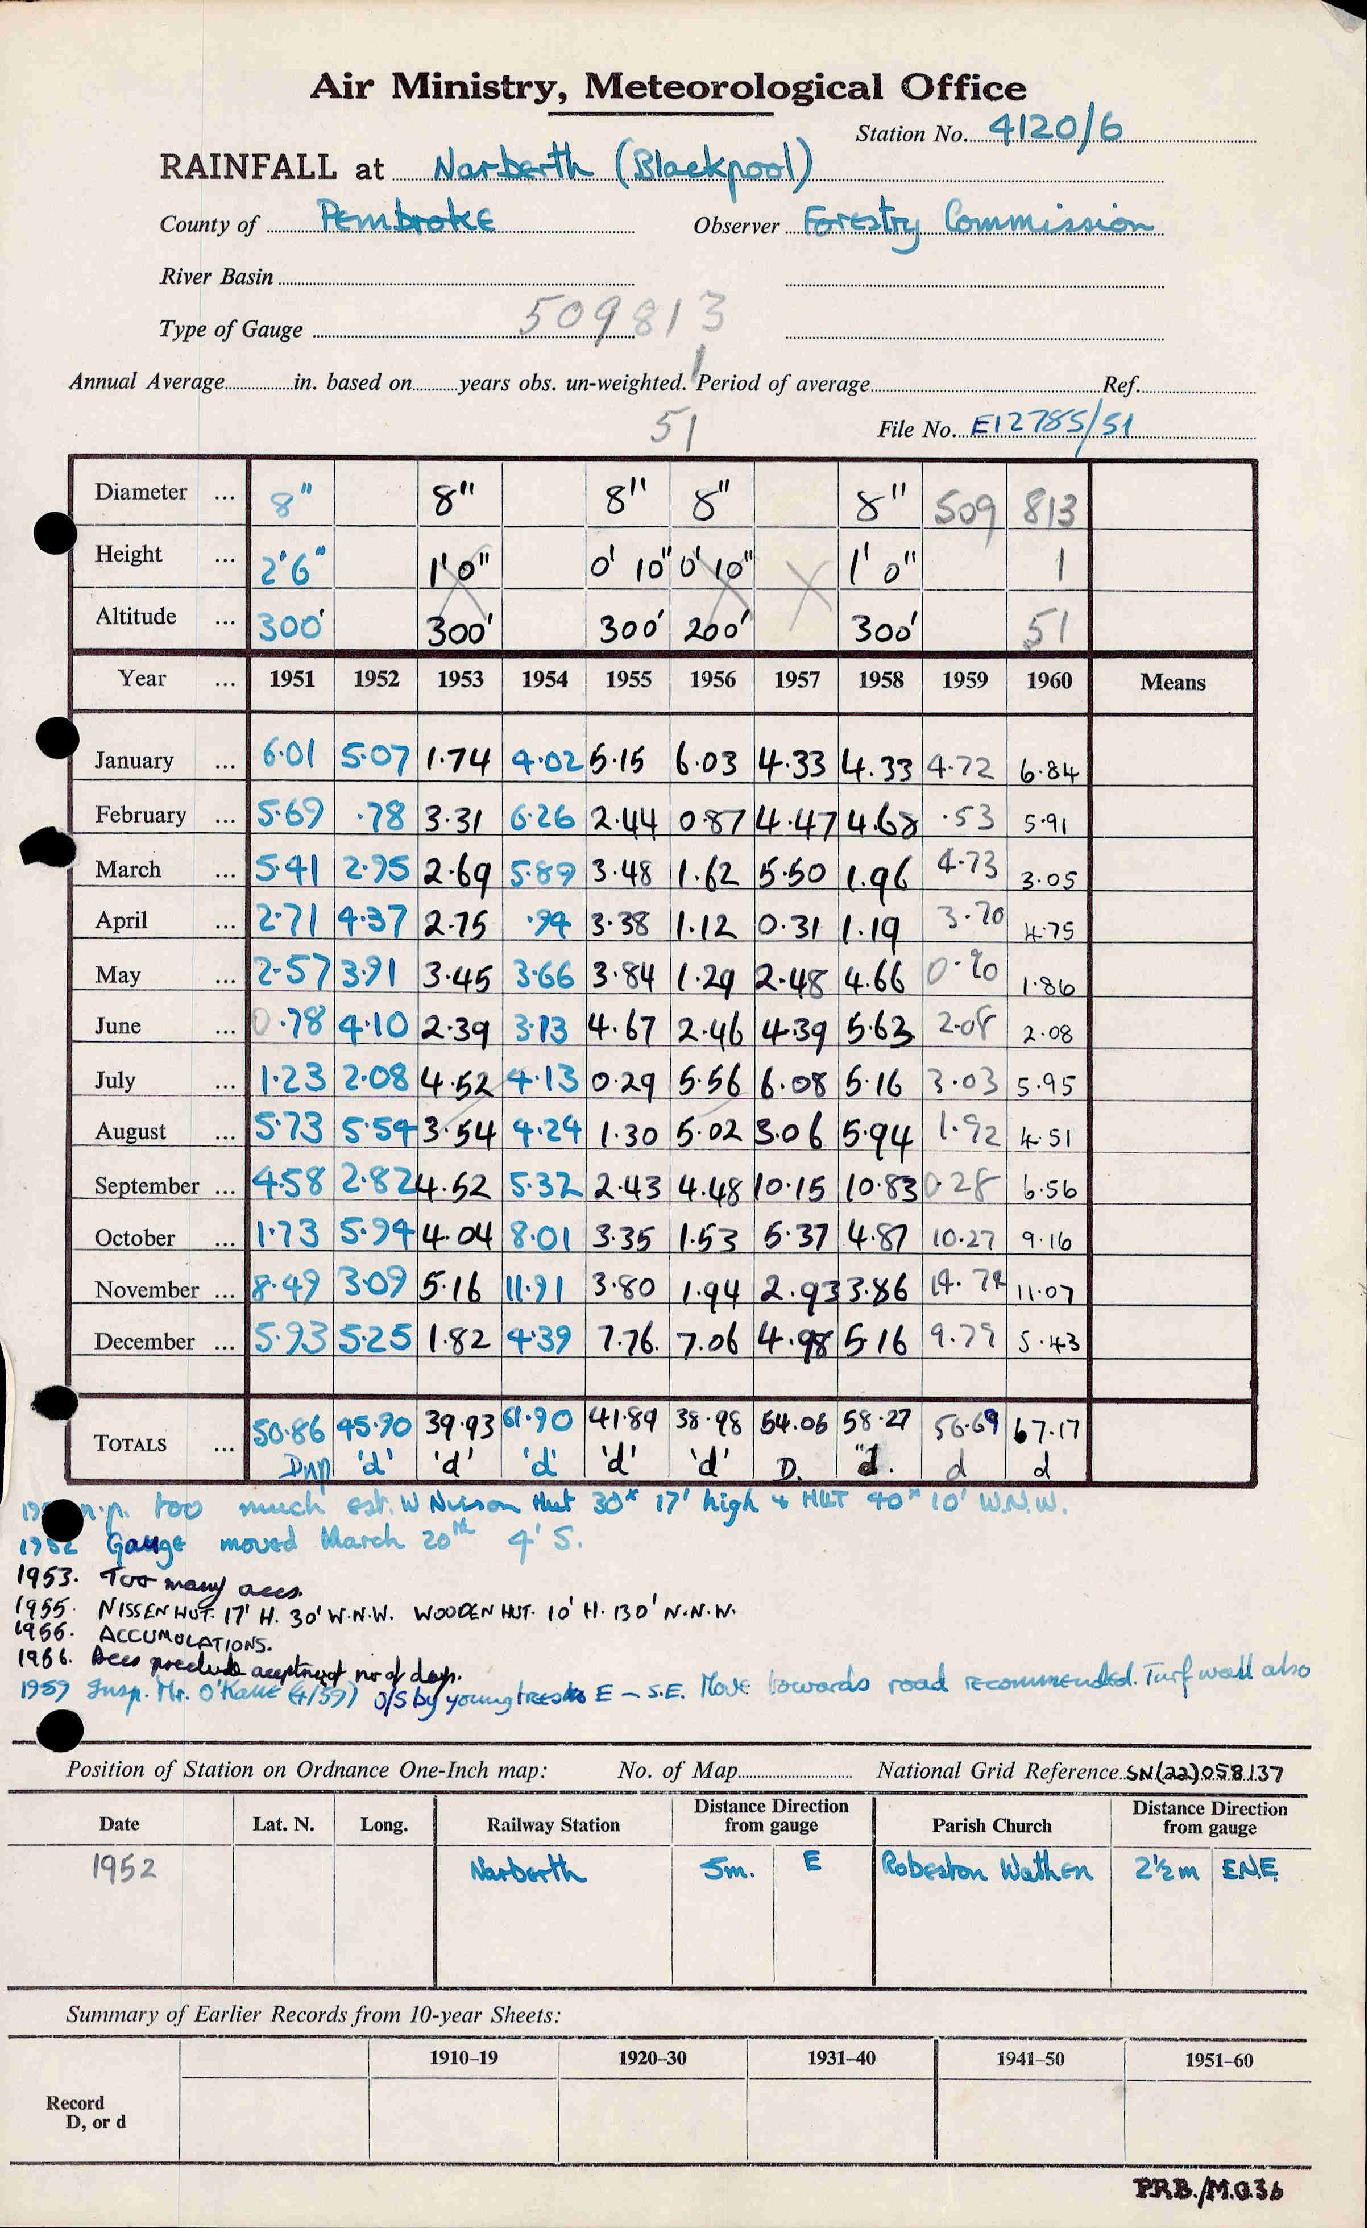 Air Ministry, Meteorological Office
Station No. 4120/6
RAINFALL at Narberth (Blackpool)
County of Pembroke Observer Forestry Commission
River Basin
Type of Gauge 509813
1
Annual Average in. based on years obs. un-weighted. Period of average Ref.
51 File No. E12785/51
Diameter ... 8" 8" 8" 8" 8" 509 813
Height ... 2'6" 1'0" 0' 10" 0' 10" 1' 0" 1
Altitude ... 300' 300' 300' 200' 300' 51
Year ... 1951 1952 1953 1954 1955 1956 1957 1958 1959 1960 Means
January ... 6.01 5.07 1.74 4.02 5.15 6.03 4.33 4.33 4.72 6.84
February ... 5.69 .78 3.31 6.26 2.44 0.87 4.47 4.68 .53 5.91
March ... 5.41 2.95 2.69 5.89 3.48 1.62 5.50 1.96 4.73 3.05
April ... 2.71 4.37 2.75 .94 3.38 1.12 0.31 1.19 3.70 4.75
May ... 2.57 3.91 3.45 3.66 3.84 1.29 2.48 4.66 0.90 1.86
June ... 0.78 4.10 2.39 3.13 4.67 2.46 4.39 5.63 2.08 2.08
July ... 1.23 2.08 4.52 4.13 0.29 5.56 6.08 5.16 3.03 5.95
August ... 5.73 5.54 3.54 4.24 1.30 5.02 3.06 5.94 1.92 4.51
September ... 4.58 2.82 4.52 5.32 2.43 4.48 10.15 10.83 0.28 6.56
October ... 1.73 5.94 4.04 8.01 3.35 1.53 5.37 4.87 10.27 9.16
November ... 8.49 3.09 5.16 11.91 3.80 1.94 2.93 3.86 14.74 11.07
December ... 5.93 5.25 1.82 4.39 7.76 7.06 4.98 5.16 9.79 5.43
TOTALS ... 50.86 45.90 39.93 61.90 41.89 38.98 54.05 58.27 56.69 67.17
Dnp 'd' 'd' 'd' 'd' 'd' D. "d. d d
n.p. too much est. W Nissen Hut 30ˣ 17' high & HUT 40ˣ 10' W.N.W.
1952 Gauge moved March 20th 4' S.
1953. Too many accs.
1955. NISSEN HUT. 17' H. 30' W.N.W. WOODEN HUT. 10' H. 130' N.N.W.
1956. ACCUMULATIONS.
1956. Accs preclude acceptance of no of days.
1959 Insp. Mr. O'Kane (4/59) o/s by young trees to E - S.E. Move towards road recommended. Turf wall also
Position of Station on Ordnance One-Inch map: No. of Map National Grid Reference SN(22)058137
Date Lat. N. Long. Railway Station Distance Direction from gauge Parish Church Distance Direction from gauge
1952 Narberth 5m. E Robeston Wathen 2½m E.N.E.
Summary of Earlier Records from 10-year Sheets:
1910–19 1920–30 1931–40 1941–50 1951–60
Record
D, or d
P.R.B./M.O.36